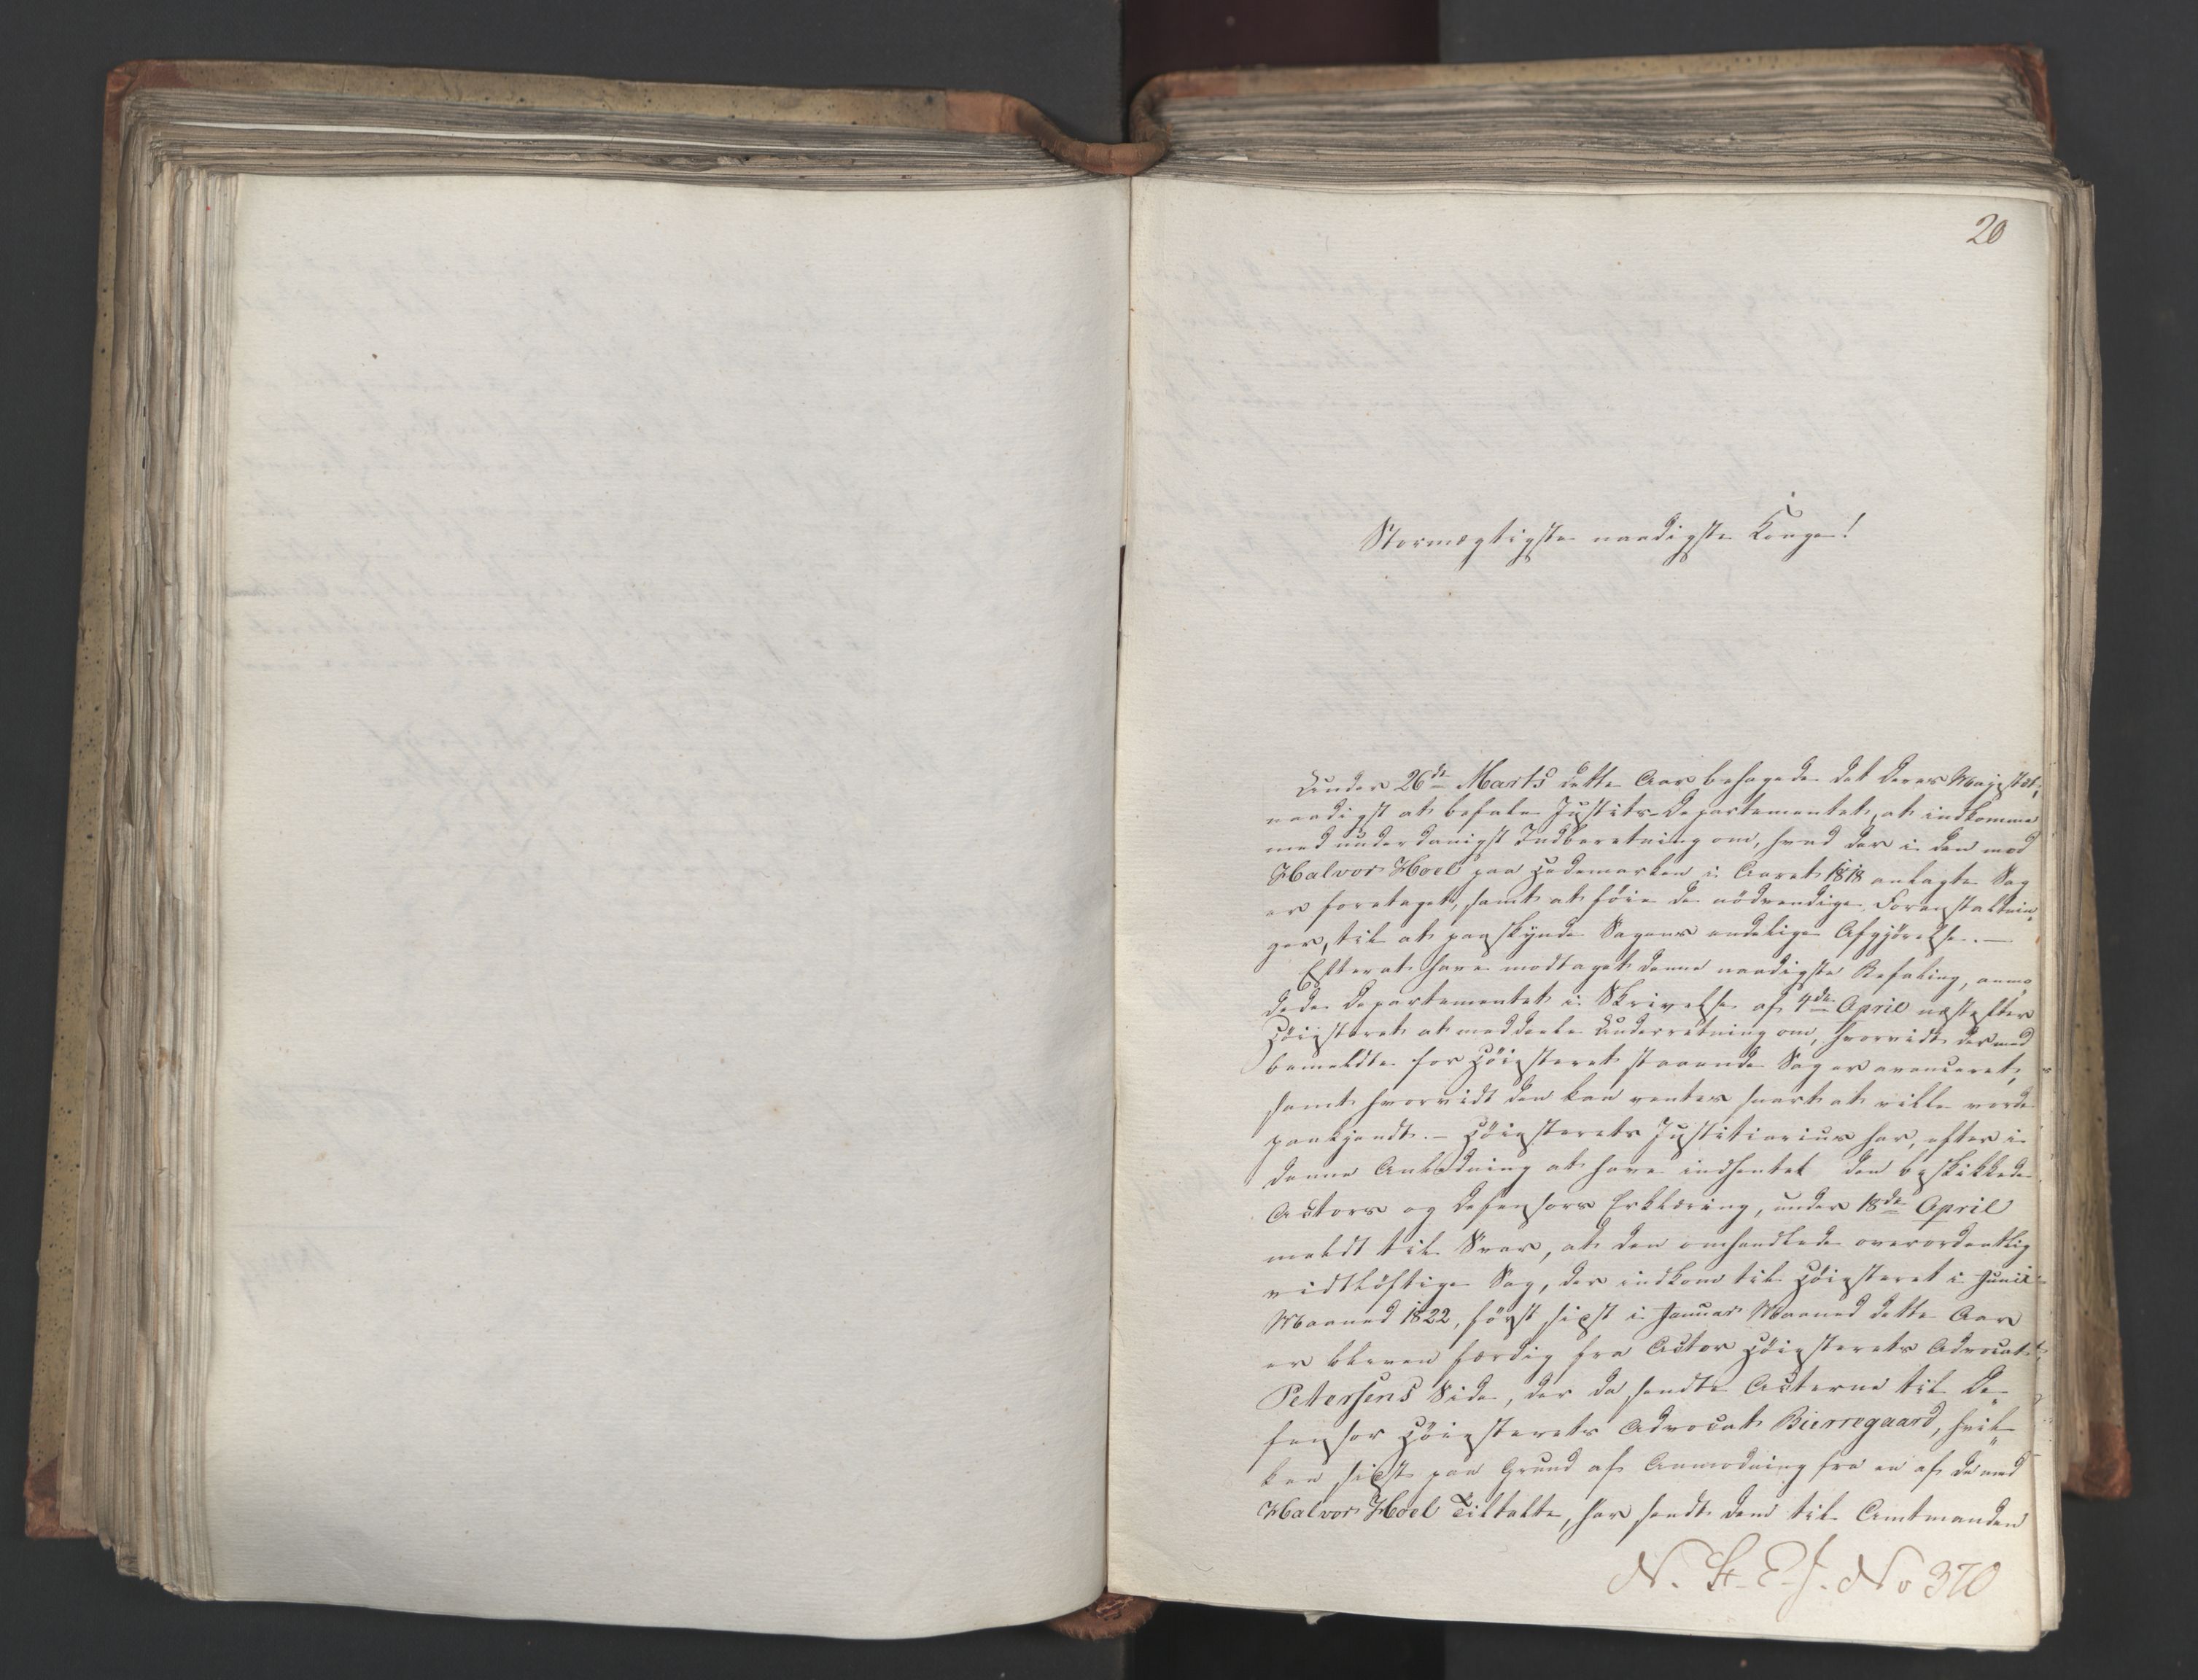 20
Stormægtigste naadigste Konge!
Under 26de Marts dette Aar behagede det Deres Majestæt,
naadigst at befale Justits-Departementet, at indkomme
med underdanigst Indberetning om, hvad der i den mod
Halvor Hoel paa Hedemarken i Aaret 1818 anlagte Sag
er foretaget, samt at føie de nödvendige Foranstaltnin„
ger, til at paaskynde Sagens endelige Afgjörelse. —
Efterat have modtaget denne naadigste Befaling, anmo„
dede Departementet i Skrivelse af 4de April næstefter
Höiesteret at meddeele Underretning om, hvorvidt der med
bemeldte for Höiesteret staaende Sag er avanceret,
samt hvorvidt den kan ventes snart at ville vorde
paakjendt. – Höiesterets Justitiarius har, efter i
denne Anledning at have indhentet den beskikkede
Actors og Defensors Erklæring, under 18de April
meldt til Svar, at den omhandlede overordentlig
vidtlöftige Sag, der indkom til Höiesteret i Junii
Maaned 1822, först sidst i Januar Maaned dette Aar
er bleven færdig fra Actor Höiesterets Advocat
Petersens Side, der da sendte Acterne til De„
fensor Höiesterets Advocat Bierregaard, hvil„
ken sidste paa Grund af Anmodning fra en af de med
Halvor Hoel Tiltalte, har sendt dem til Amtmanden
N. St. E. J. No 370